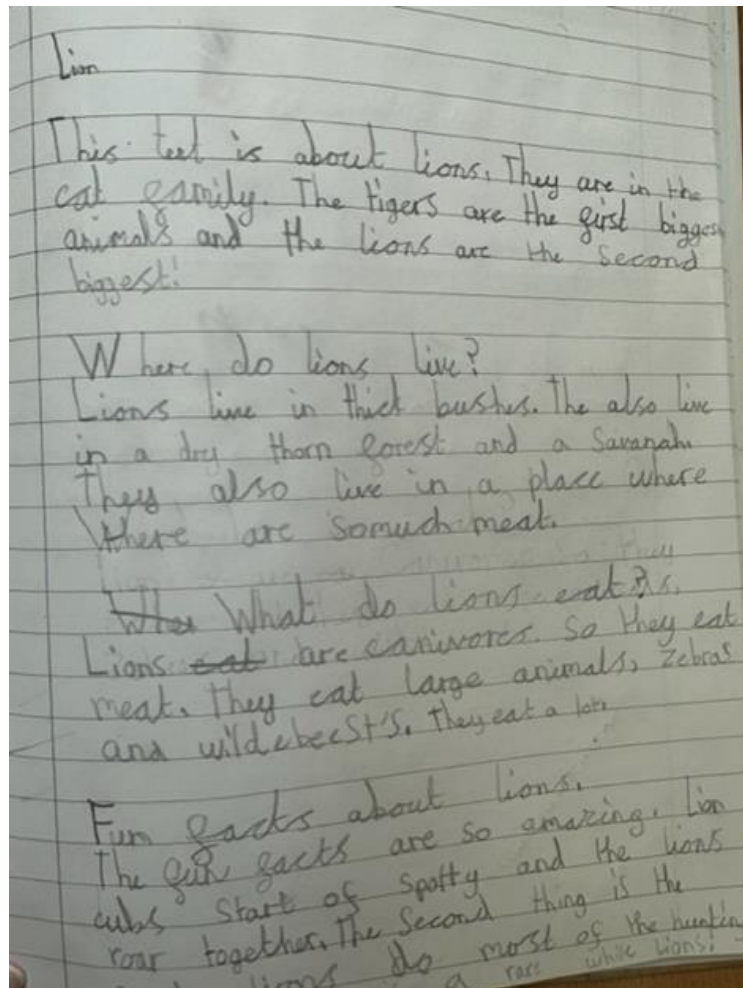 Lion
This text is about lions. They are in the
cat family. The tigers are the first biggest
animals and the lions are the second
biggest!
Where do lions live?
Lions live in thick bushes. The also live
in a dry thorn forest and a Savanah.
They also live in a place where
there are somuch meat.
What do lions eat?
Lions are canivores. So they eat
meat. They eat large animals, Zebras
and wildebeest's. They eat a lot.
Fun facts about lions.
The fun facts are so amazing. Lion
cubs Start of spotty and the lions
roar together. The Second thing is the
lions do most of the huntin
a rare white lions!